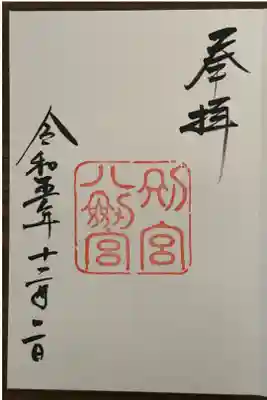 奉拝
別宮
八剱宮
令和五年十二月二日